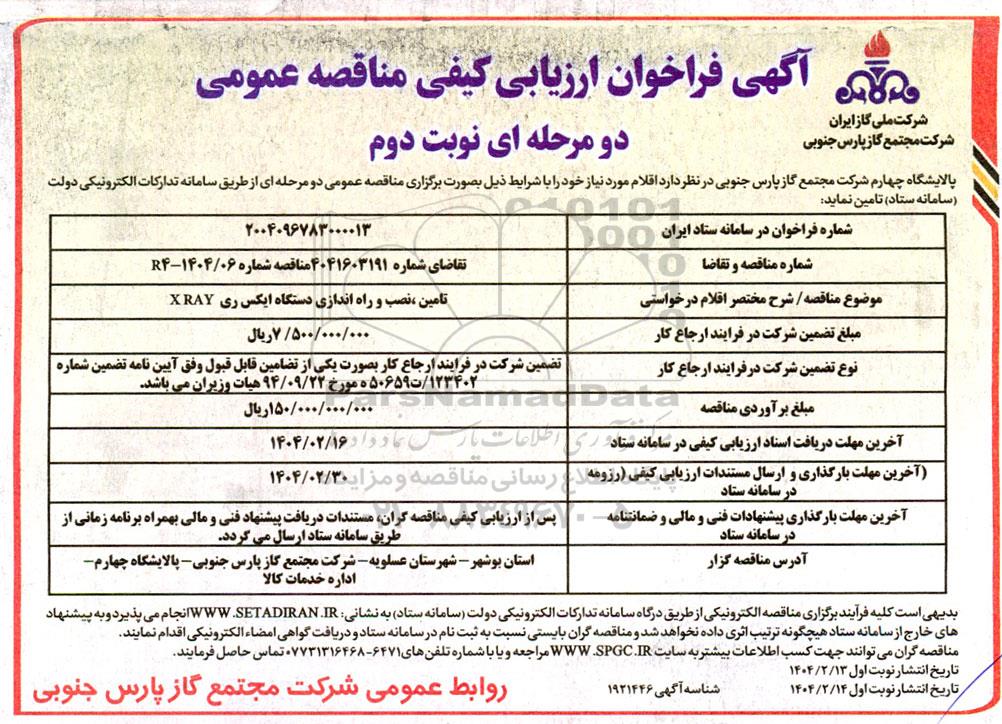 آگهی فراخوان ارزیابی کیفی مناقصه عمومی
دو مرحله ای نوبت دوم
شرکت ملی گاز ایران
شرکت مجتمع گاز پارس جنوبی
پالایشگاه چهارم شرکت مجتمع گاز پارس جنوبی در نظر دارد اقلام مورد نیاز خود را با شرایط ذیل بصورت برگزاری مناقصه عمومی دو مرحله ای از طریق سامانه تدارکات الکترونیکی دولت
(سامانه ستاد) تامین نماید:
شماره فراخوان در سامانه ستاد ایران ۲۰۰۴۰۹۶۷۸۳۰۰۰۰۱۳
شماره مناقصه و تقاضا تقاضای شماره ۴۰۴۱۶۰۳۱۹۱ مناقصه شماره R۴-۱۴۰۴/۰۶
موضوع مناقصه/ شرح مختصر اقلام درخواستی تامین ،نصب و راه اندازی دستگاه ایکس ری X RAY
مبلغ تضمین شرکت در فرایند ارجاع کار ۷/۵۰۰/۰۰۰/۰۰۰ریال
نوع تضمین شرکت در فرایند ارجاع کار تضمین شرکت در فرایند ارجاع کار بصورت یکی از تضامین قابل قبول وفق آیین نامه تضمین شماره
۱۲۳۴۰۲/ت۵۰۶۵۹ ه مورخ ۹۴/۰۹/۲۲ هیات وزیران می باشد.
مبلغ برآوردی مناقصه ۱۵۰/۰۰۰/۰۰۰/۰۰۰ریال
آخرین مهلت دریافت اسناد ارزیابی کیفی در سامانه ستاد ۱۴۰۴/۰۲/۱۶
(آخرین مهلت بارگذاری و ارسال مستندات ارزیابی کیفی (رزومه
در سامانه ستاد ۱۴۰۴/۰۲/۳۰
آخرین مهلت بارگذاری پیشنهادات فنی و مالی و ضمانتنامه
در سامانه ستاد
پس از ارزیابی کیفی مناقصه گران، مستندات دریافت پیشنهاد فنی و مالی بهمراه برنامه زمانی از
طریق سامانه ستاد ارسال می گردد.
آدرس مناقصه گزار استان بوشهر – شهرستان عسلویه – شرکت مجتمع گاز پارس جنوبی – پالایشگاه چهارم –
اداره خدمات کالا
بدیهی است کلیه فرآیند برگزاری مناقصه الکترونیکی از طریق درگاه سامانه تدارکات الکترونیکی دولت (سامانه ستاد) به نشانی: WWW.SETADIRAN.IR انجام می پذیرد و به پیشنهاد
های خارج از سامانه ستاد هیچگونه ترتیب اثری داده نخواهد شد و مناقصه گران بایستی نسبت به ثبت نام در سامانه ستاد و دریافت گواهی امضاء الکترونیکی اقدام نمایند.
مناقصه گران می توانند جهت کسب اطلاعات بیشتر به سایت WWW.SPGC.IR مراجعه و یا با شماره تلفن های ۶۴۷۱-۰۷۷۳۱۳۱۶۴۶۸ تماس حاصل فرمایند.
تاریخ انتشار نوبت اول ۱۴۰۴/۲/۱۳
تاریخ انتشار نوبت اول ۱۴۰۴/۲/۱۴ شناسه آگهی ۱۹۲۱۴۴۶
روابط عمومی شرکت مجتمع گاز پارس جنوبی
ParsNamadData